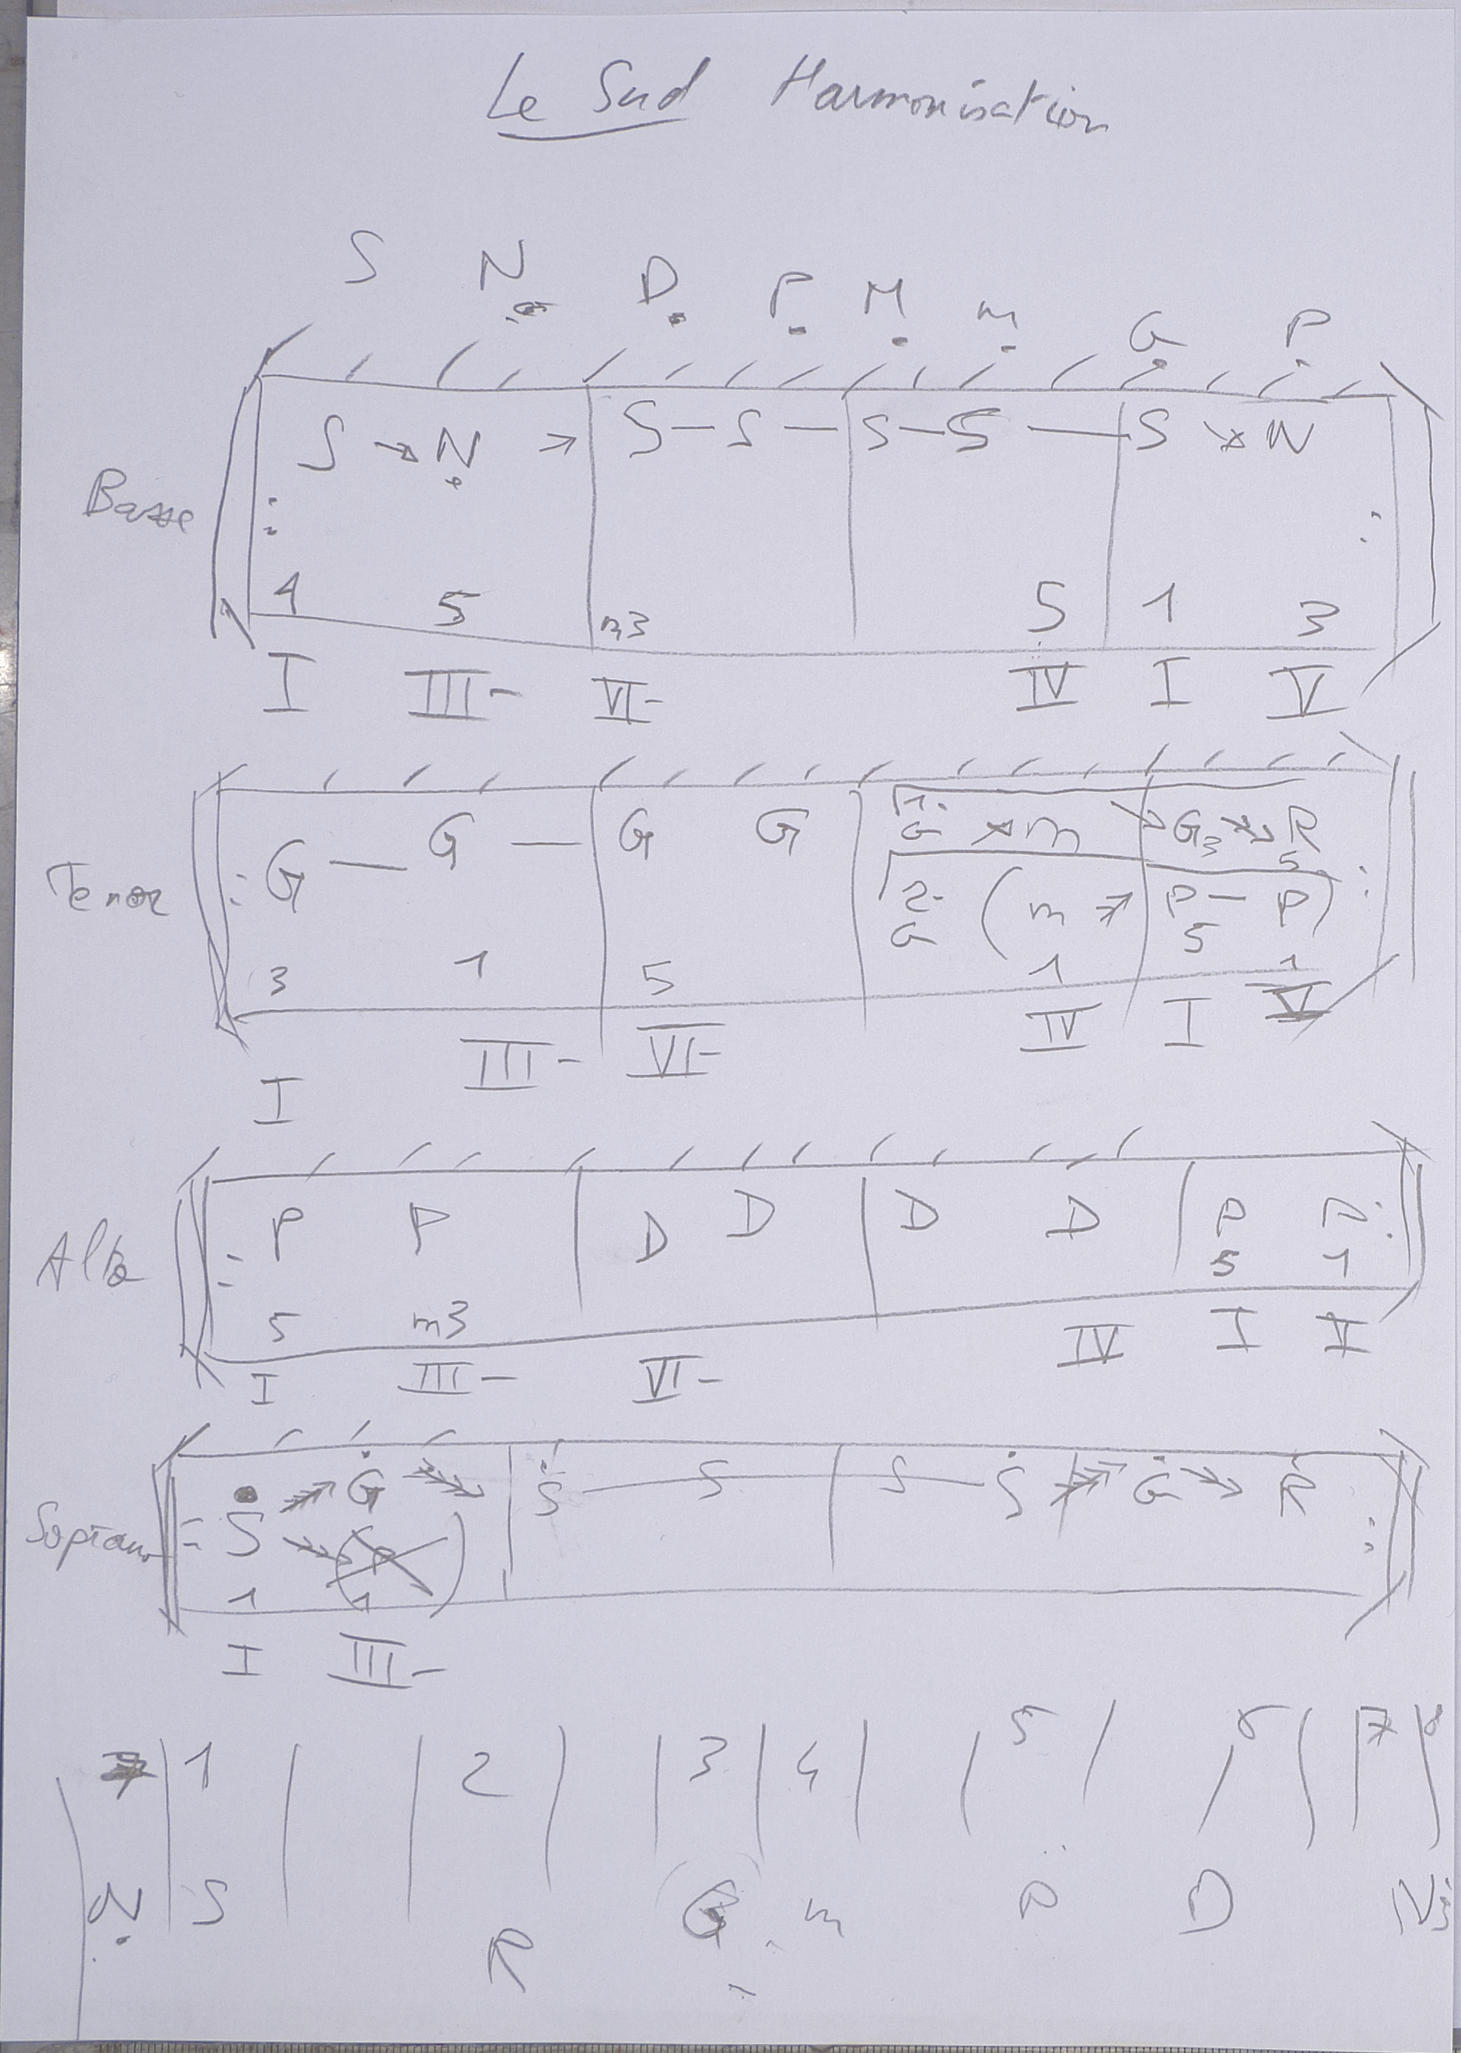 Le Sud Harmonisation
S N D P M m G P
S → N → S - S - S - S - S → N
Basse
1 5 m3 5 1 3
I III- VI- IV I V
G - G - G G 1. G → m → G3 → R 5
Tenor
2. G ( m → P - P )
5
3 1 5 1 1
IV I V
III- VI-
I
P P D D D D P P
Alto
5 1
5 m3
IV I V
I III- VI-
S → G → S - S S - S → G → R
Soprano
1 1
I III-
7 1 2 3 4 5 6 7 8
N S R G m P D N